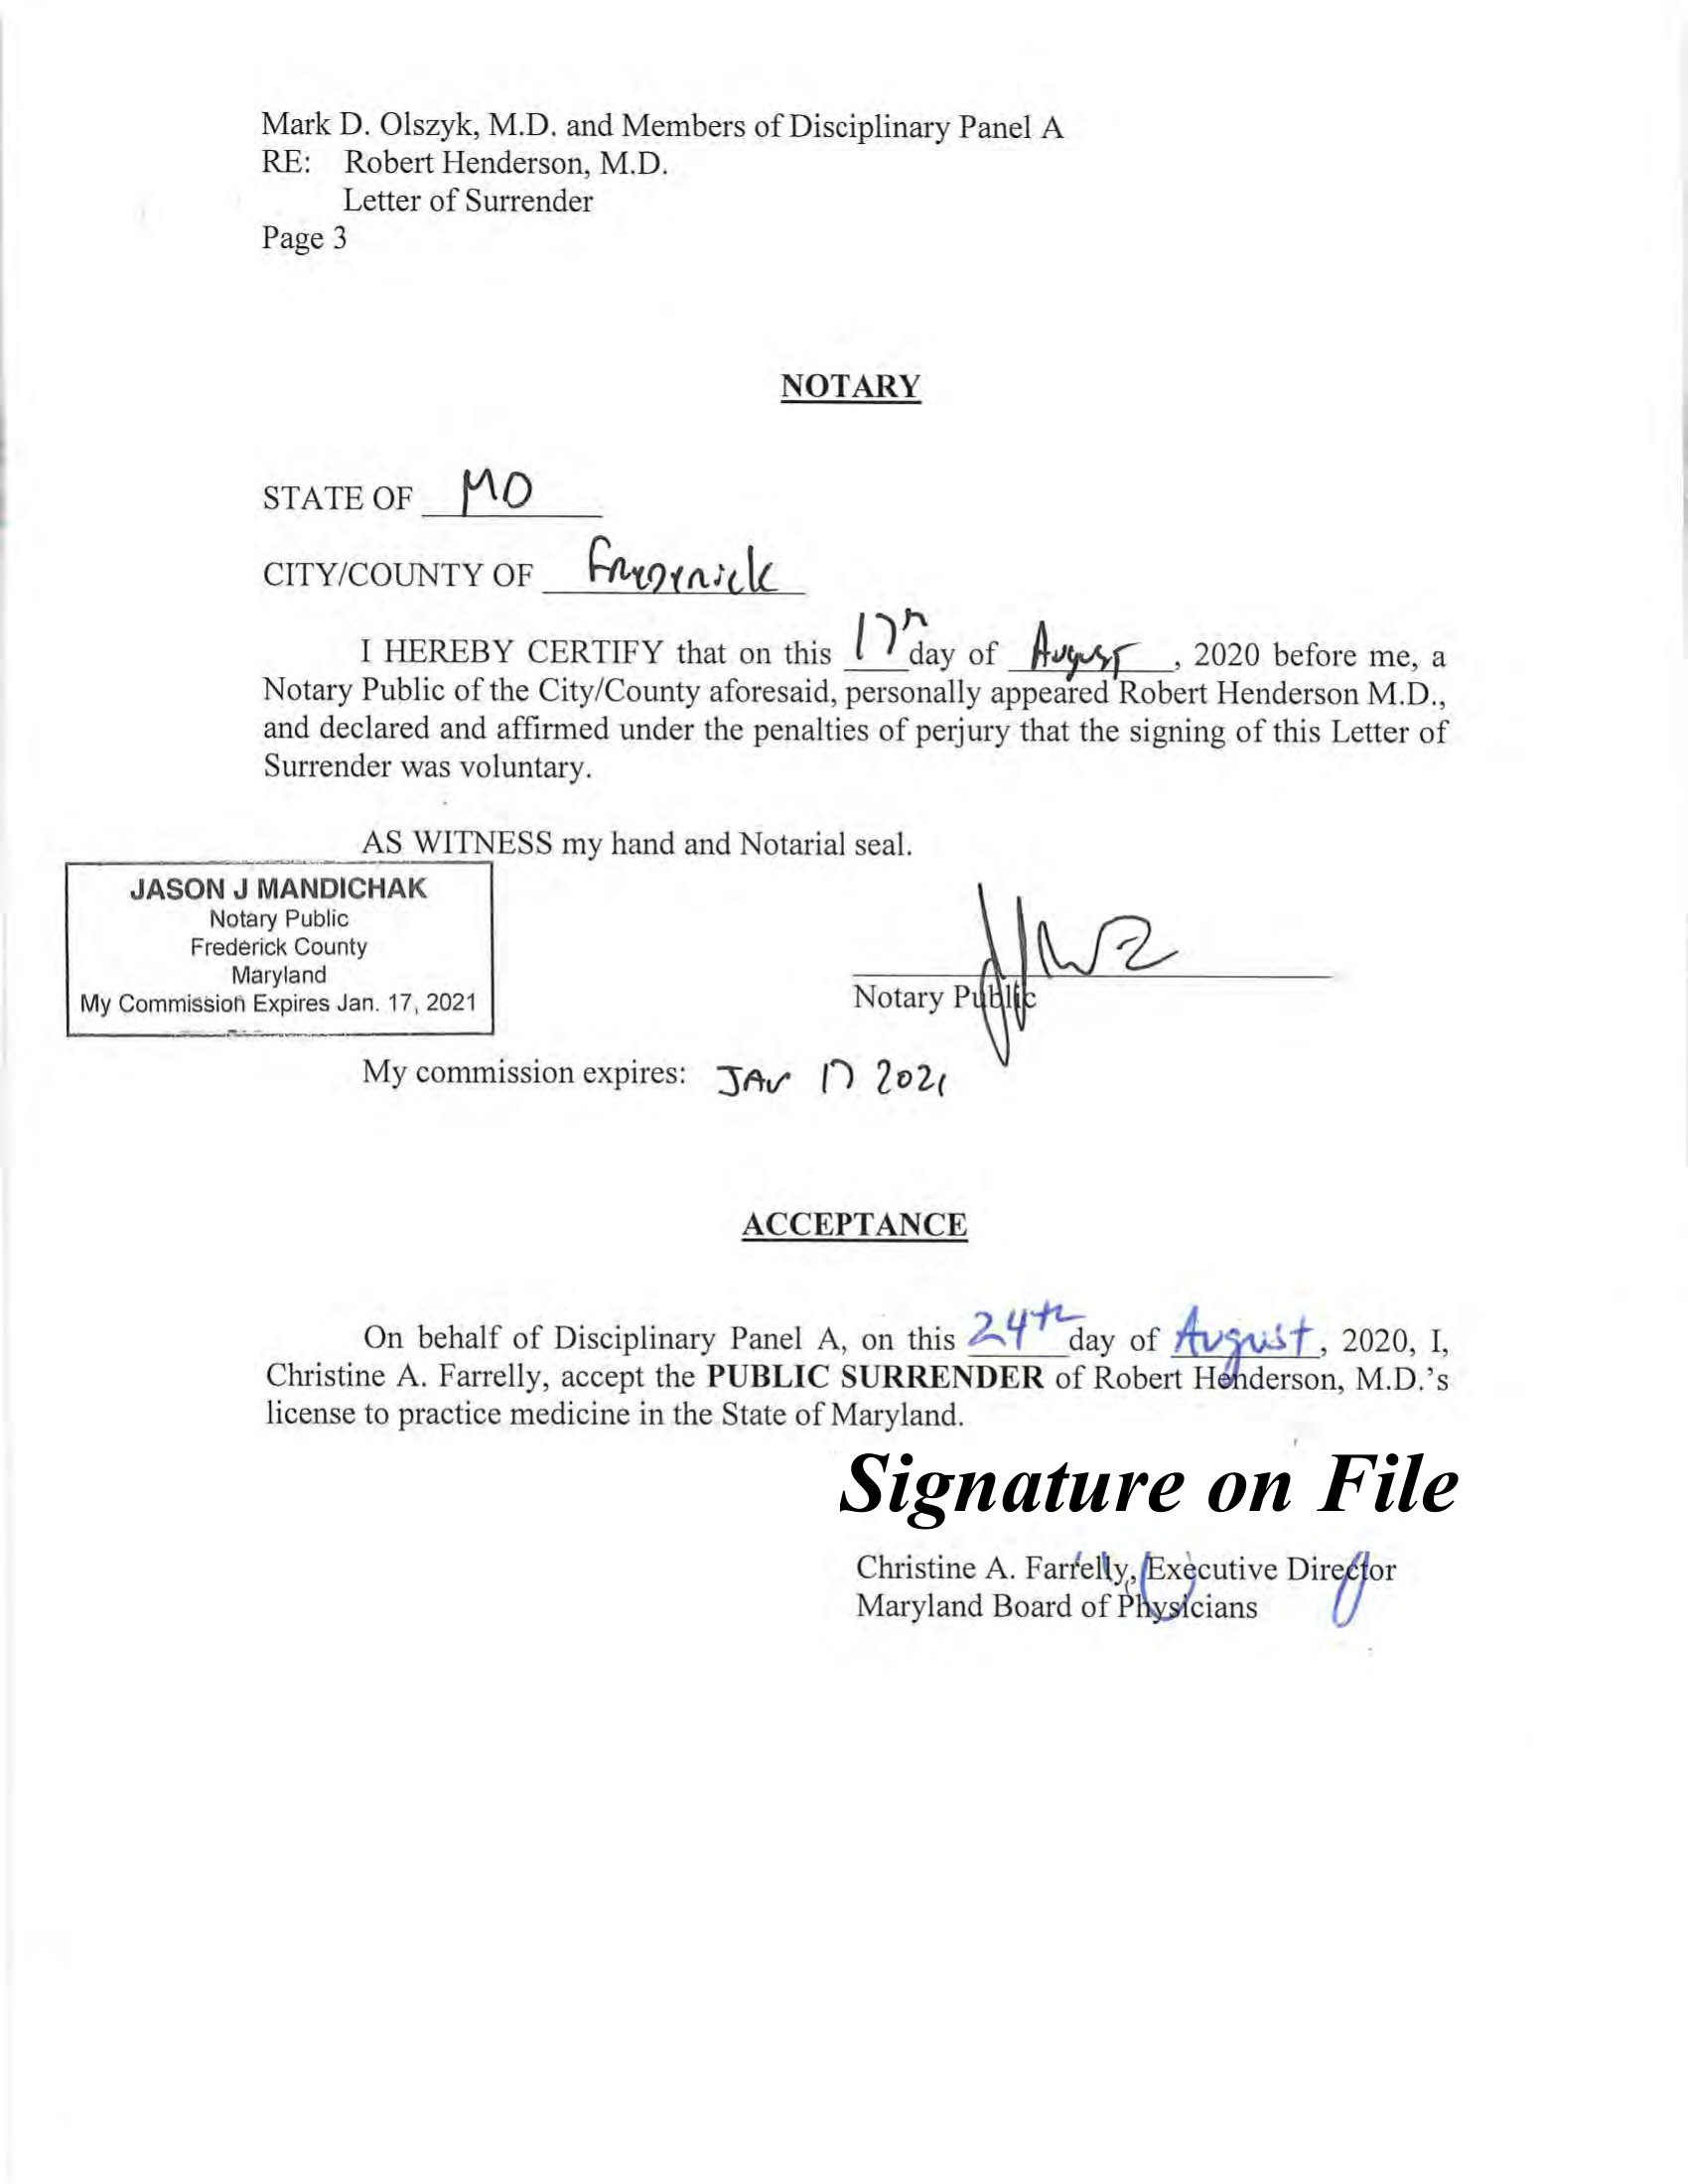 Mark D. Olszyk, M.D. and Members of Disciplinary Panel A
RE: Robert Henderson, M.D.
Letter of Surrender
Page 3
NOTARY
STATE OF MD
CITY/COUNTY OF Frederick
I HEREBY CERTIFY that on this 17th day of August, 2020 before me, a
Notary Public of the City/County aforesaid, personally appeared Robert Henderson M.D.,
and declared and affirmed under the penalties of perjury that the signing of this Letter of
Surrender was voluntary.
AS WITNESS my hand and Notarial seal.
JASON J MANDICHAK
Notary Public
Frederick County
Maryland
My Commission Expires Jan. 17, 2021
Notary Public
My commission expires: JAN 17 2021
ACCEPTANCE
On behalf of Disciplinary Panel A, on this 24th day of August, 2020, I,
Christine A. Farrelly, accept the PUBLIC SURRENDER of Robert Henderson, M.D.'s
license to practice medicine in the State of Maryland.
Signature on File
Christine A. Farrelly, Executive Director
Maryland Board of Physicians